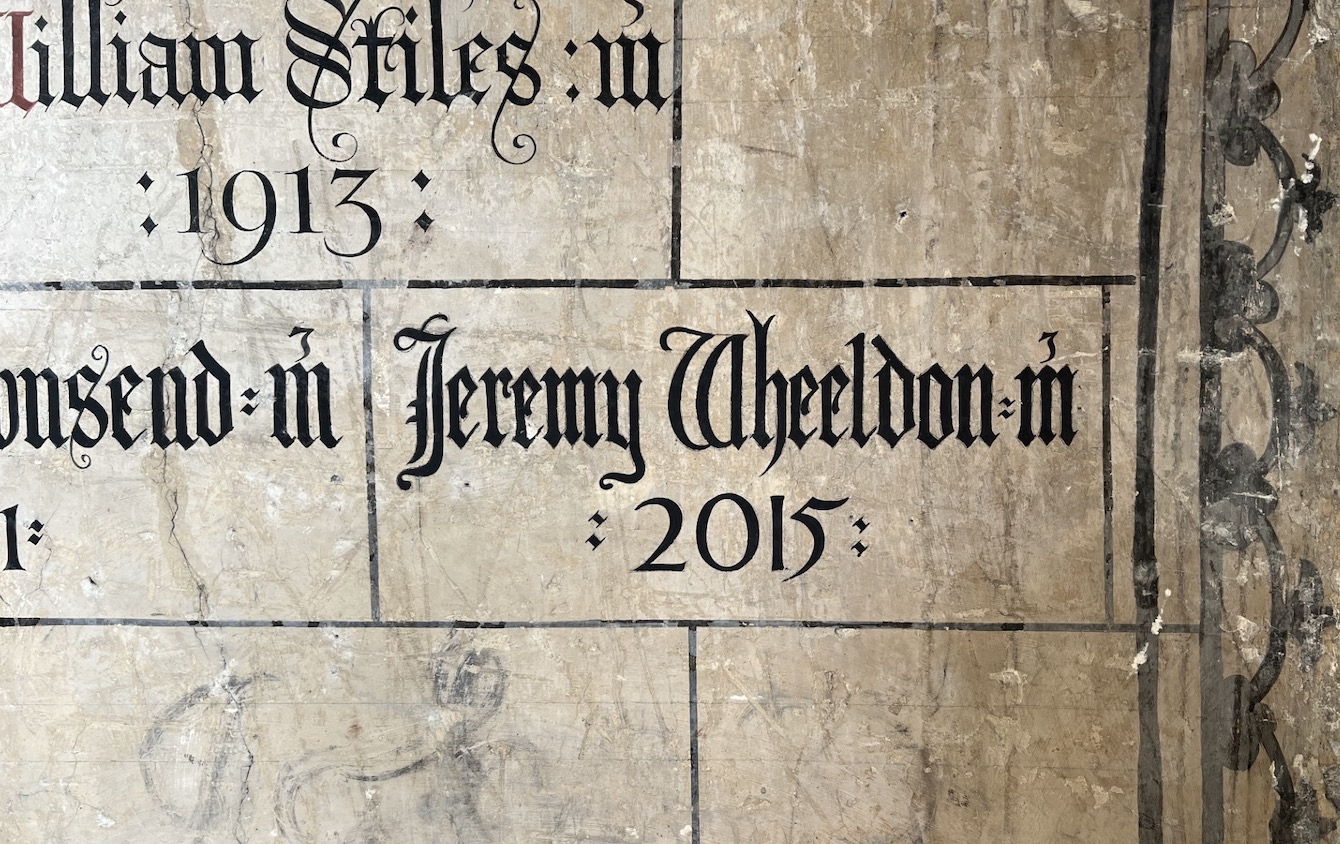 William Stiles :m̉
:1913:
onsend:m̉
Jeremy Wheeldon:m̉
1:
:2015: